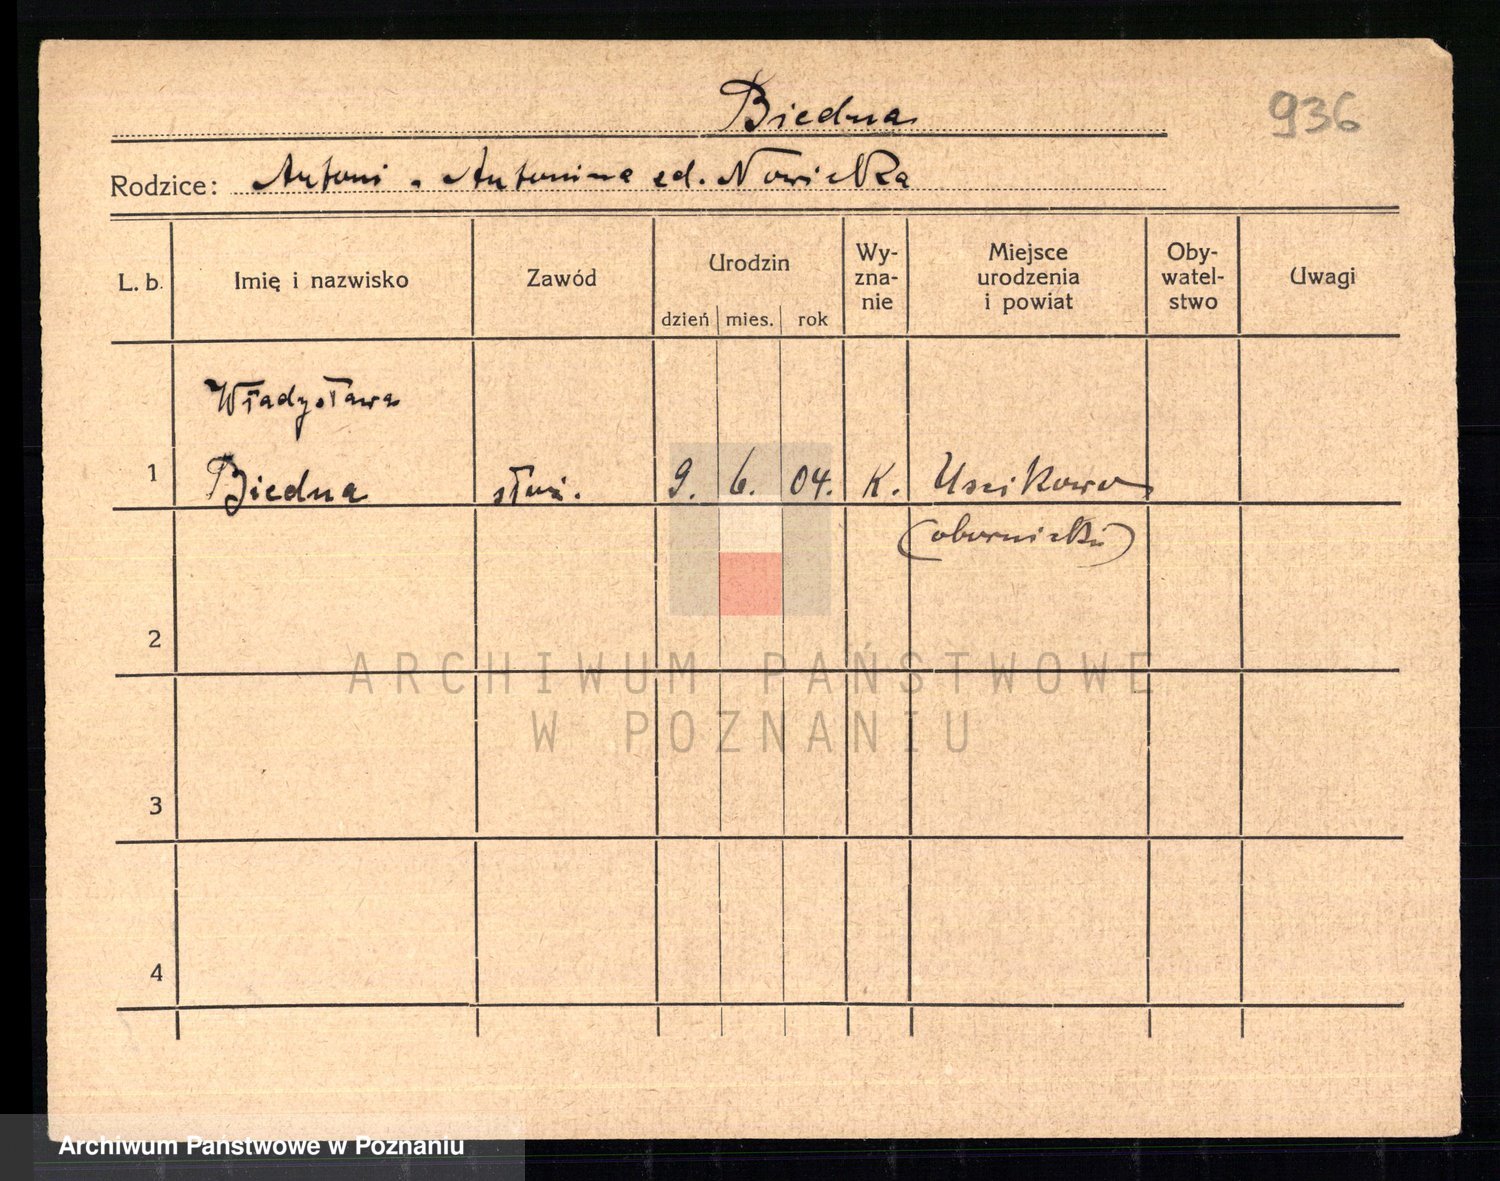 Biedna
936
Rodzice: Antoni . Antonina zd. Nowicka
L. b. Imię i nazwisko Zawód Urodzin dzień mies. rok Wy-zna-nie Miejsce urodzenia i powiat Oby-watel-stwo Uwagi
Władysława
1 Biedna służ. 9. 6. 04. K. Uścikowo
(obornicki)
2
3
4
ARCHIWUM PAŃSTWOWE
W POZNANIU
Archiwum Państwowe w Poznaniu